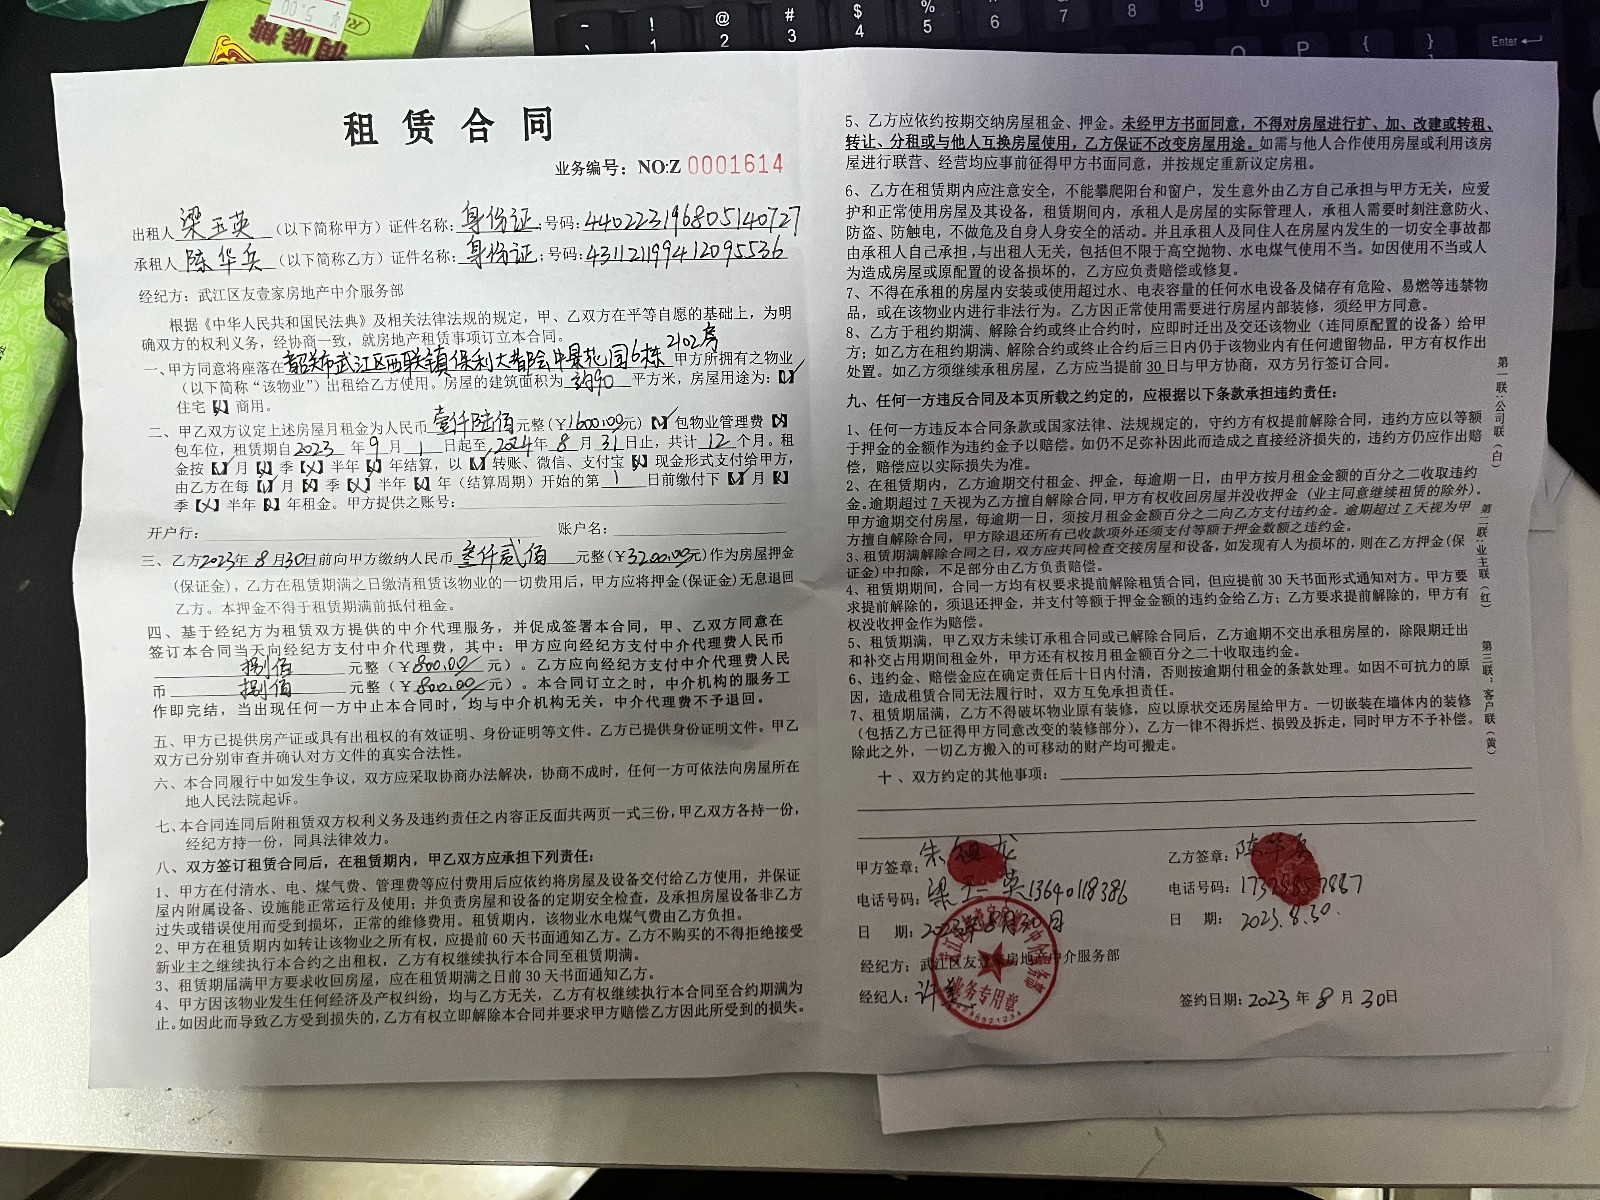 ¥ 5.00
润喉糖
租赁合同
业务编号：NO:Z 0001614
出租人 梁玉英 （以下简称甲方）证件名称：身份证；号码：440223196805140727
承租人 陈华兵 （以下简称乙方）证件名称：身份证；号码：431121199412095536
经纪方：武江区友壹家房地产中介服务部
根据《中华人民共和国民法典》及相关法律法规的规定，甲、乙双方在平等自愿的基础上，为明
确双方的权利义务，经协商一致，就房地产租赁事项订立本合同。
一、甲方同意将座落在韶关市武江区西联镇保利大都会中景花园6栋2102房 甲方所拥有之物业
（以下简称“该物业”）出租给乙方使用。房屋的建筑面积为 约90 平方米，房屋用途为：【√】
住宅【X】商用。
二、甲乙双方议定上述房屋月租金为人民币 壹仟陆佰 元整（¥1600.00元）【√】包物业管理费【X】
包车位，租赁期自2023 年 9 月 1 日起至 2024 年 8 月 31 日止，共计 12 个月。租
金按【√】月【X】季【X】半年【X】年结算，以【√】转账、微信、支付宝【X】现金形式支付给甲方，
由乙方在每【√】月【X】季【X】半年【X】年（结算周期）开始的第 1 日前缴付下【√】月【X】
季【X】半年【X】年租金。甲方提供之账号：
开户行： 账户名：
三、乙方2023年 8 月30日前向甲方缴纳人民币 叁仟贰佰 元整（¥3200.00元）作为房屋押金
（保证金），乙方在租赁期满之日缴清租赁该物业的一切费用后，甲方应将押金（保证金）无息退回
乙方。本押金不得于租赁期满前抵付租金。
四、基于经纪方为租赁双方提供的中介代理服务，并促成签署本合同，甲、乙双方同意在
签订本合同当天向经纪方支付中介代理费，其中：甲方应向经纪方支付中介代理费人民币
捌佰 元整（¥800.00 元）。乙方应向经纪方支付中介代理费人民
币 捌佰 元整（¥800.00 元）。本合同订立之时，中介机构的服务工
作即完结，当出现任何一方中止本合同时，均与中介机构无关，中介代理费不予退回。
五、甲方已提供房产证或具有出租权的有效证明、身份证明等文件。乙方已提供身份证明文件。甲乙
双方已分别审查并确认对方文件的真实合法性。
六、本合同履行中如发生争议，双方应采取协商办法解决，协商不成时，任何一方可依法向房屋所在
地人民法院起诉。
七、本合同连同后附租赁双方权利义务及违约责任之内容正反面共两页一式三份，甲乙双方各持一份，
经纪方持一份，同具法律效力。
八、双方签订租赁合同后，在租赁期内，甲乙双方应承担下列责任：
1、甲方在付清水、电、煤气费、管理费等应付费用后应依约将房屋及设备交付给乙方使用，并保证
屋内附属设备、设施能正常运行及使用；并负责房屋和设备的定期安全检查，及承担房屋设备非乙方
过失或错误使用而受到损坏，正常的维修费用。租赁期内，该物业水电煤气费由乙方负担。
2、甲方在租赁期内如转让该物业之所有权，应提前 60 天书面通知乙方。乙方不购买的不得拒绝接受
新业主之继续执行本合约之出租权，乙方有权继续执行本合同至租赁期满。
3、租赁期届满甲方要求收回房屋，应在租赁期满之日前 30 天书面通知乙方。
4、甲方因该物业发生任何经济及产权纠纷，均与乙方无关，乙方有权继续执行本合同至合约期满为
止。如因此而导致乙方受到损失的，乙方有权立即解除本合同并要求甲方赔偿乙方因此所受到的损失。
5、乙方应依约按期交纳房屋租金、押金。未经甲方书面同意，不得对房屋进行扩、加、改建或转租、
转让、分租或与他人互换房屋使用，乙方保证不改变房屋用途。如需与他人合作使用房屋或利用该房
屋进行联营、经营均应事前征得甲方书面同意，并按规定重新议定房租。
6、乙方在租赁期内应注意安全，不能攀爬阳台和窗户，发生意外由乙方自己承担与甲方无关，应爱
护和正常使用房屋及其设备，租赁期间内，承租人是房屋的实际管理人，承租人需要时刻注意防火、
防盗、防触电，不做危及自身人身安全的活动。并且承租人及同住人在房屋内发生的一切安全事故都
由承租人自己承担，与出租人无关，包括但不限于高空抛物、水电煤气使用不当。如因使用不当或人
为造成房屋或原配置的设备损坏的，乙方应负责赔偿或修复。
7、不得在承租的房屋内安装或使用超过水、电表容量的任何水电设备及储存有危险、易燃等违禁物
品，或在该物业内进行非法行为。乙方因正常使用需要进行房屋内部装修，须经甲方同意。
8、乙方于租约期满、解除合约或终止合约时，应即时迁出及交还该物业（连同原配置的设备）给甲
方；如乙方在租约期满、解除合约或终止合约后三日内仍于该物业内有任何遗留物品，甲方有权作出
处置。如乙方须继续承租房屋，乙方应当提前 30 日与甲方协商，双方另行签订合同。
九、任何一方违反合同及本页所载之约定的，应根据以下条款承担违约责任：
1、任何一方违反本合同条款或国家法律、法规规定的，守约方有权提前解除合同，违约方应以等额
于押金的金额作为违约金予以赔偿。如仍不足弥补因此而造成之直接经济损失的，违约方仍应作出赔
偿，赔偿应以实际损失为准。
2、在租赁期内，乙方逾期交付租金、押金，每逾期一日，由甲方按月租金金额的百分之二收取违约
金。逾期超过 7 天视为乙方擅自解除合同，甲方有权收回房屋并没收押金（业主同意继续租赁的除外）。
甲方逾期交付房屋，每逾期一日，须按月租金金额百分之二向乙方支付违约金。逾期超过 7 天视为甲
方擅自解除合同，甲方除退还所有已收款项外还须支付等额于押金数额之违约金。
3、租赁期满解除合同之日，双方应共同检查交接房屋和设备，如发现有人为损坏的，则在乙方押金（保
证金）中扣除，不足部分由乙方负责赔偿。
4、租赁期期间，合同一方均有权要求提前解除租赁合同，但应提前 30 天书面形式通知对方。甲方要
求提前解除的，须退还押金，并支付等额于押金金额的违约金给乙方；乙方要求提前解除的，甲方有
权没收押金作为赔偿。
5、租赁期满，甲乙双方未续订承租合同或已解除合同后，乙方逾期不交出承租房屋的，除限期迁出
和补交占用期间租金外，甲方还有权按月租金额百分之二十收取违约金。
6、违约金、赔偿金应在确定责任后十日内付清，否则按逾期付租金的条款处理。如因不可抗力的原
因，造成租赁合同无法履行时，双方互免承担责任。
7、租赁期届满，乙方不得破坏物业原有装修，应以原状交还房屋给甲方。一切嵌装在墙体内的装修
（包括乙方已征得甲方同意改变的装修部分），乙方一律不得拆烂、损毁及拆走，同时甲方不予补偿。
除此之外，一切乙方搬入的可移动的财产均可搬走。
十、双方约定的其他事项：
甲方签章：朱祖龙
乙方签章：陈华兵
电话号码：梁玉英13640118386
电话号码：17378857887
日 期：2023年8月30日
日 期：2023.8.30.
经纪方：武江区友壹家房地产中介服务部
经纪人：许
签约日期：2023 年 8 月 30日
业务专用章
第一联：公司联（白）
第二联：业主联（红）
第三联：客户联（黄）
Enter